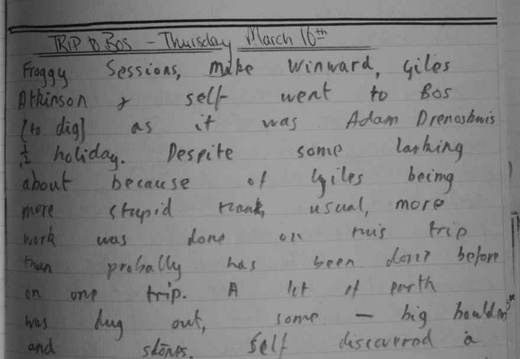 TRIP to BOS - Thursday March 16th
Froggy Sessions, Make Winward, Giles
Atkinson & self went to Bos
[to dig] as it was Adam
1/2 holiday. Despite some larking
about because of Giles being
more stupid than usual, more
work was done on this trip
than probally has been done before
on one trip. A lot of earth
was dug out, some - big boulders
and stones. Self discovered a